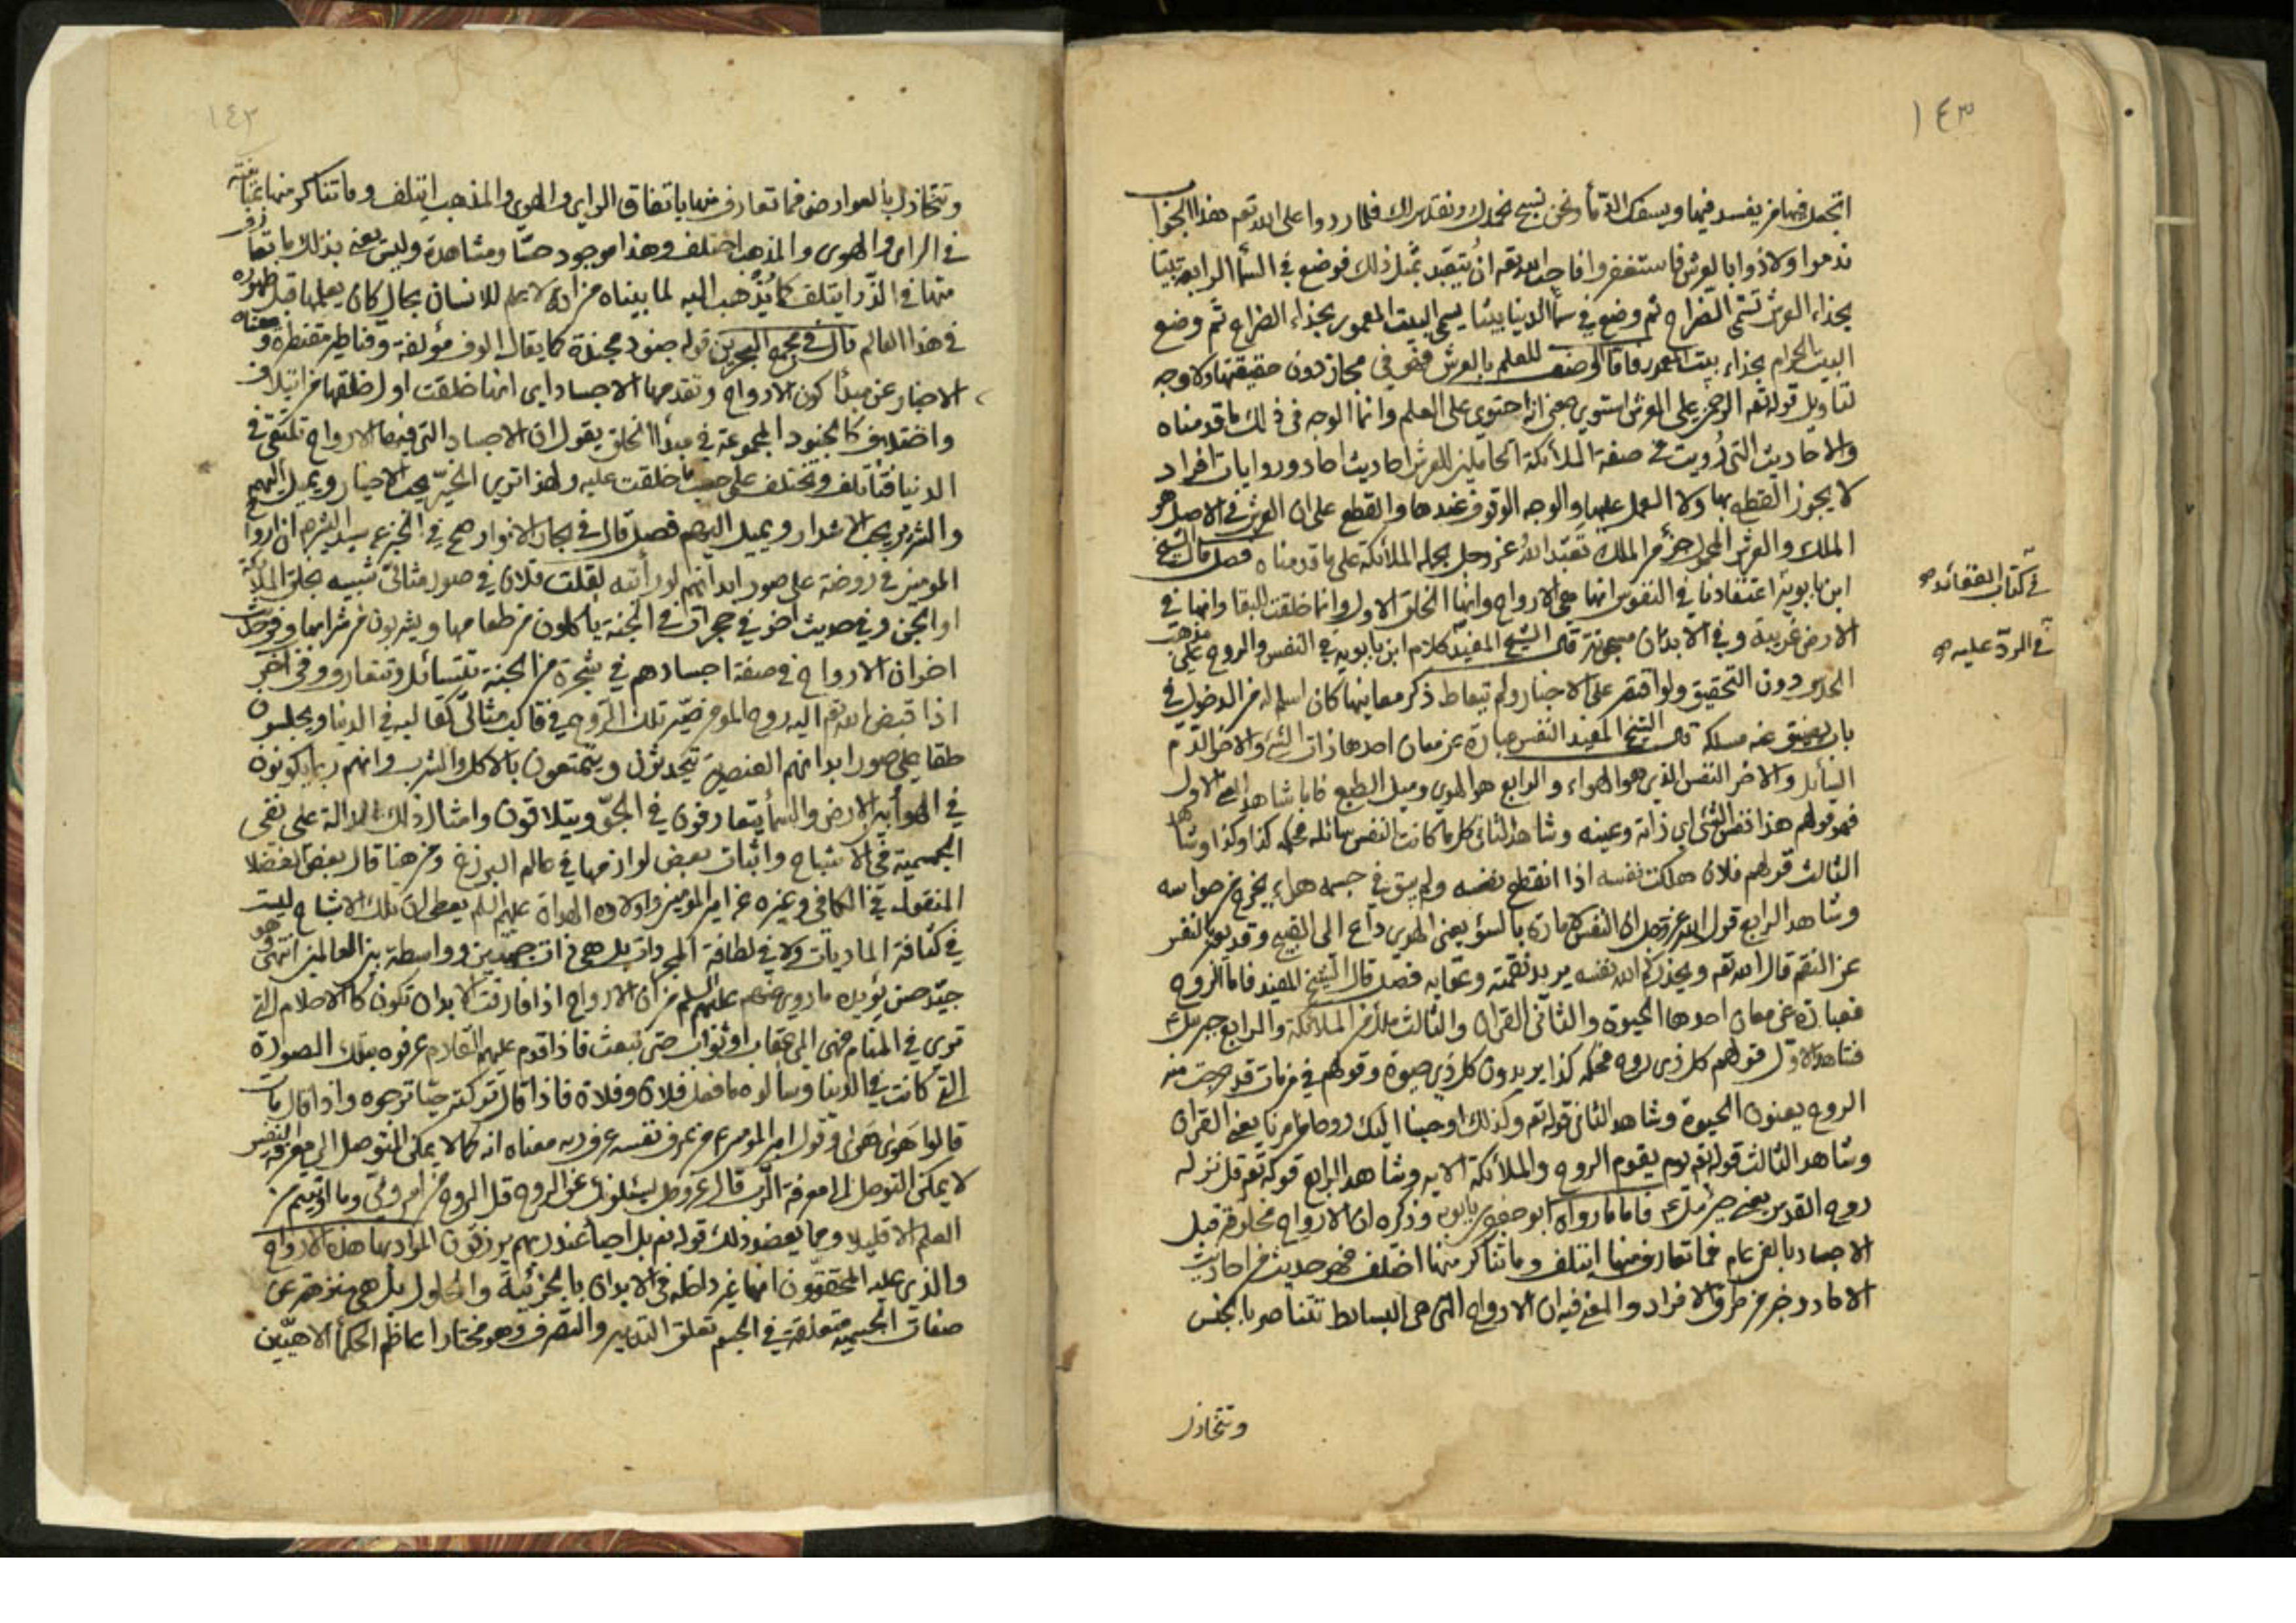 ١٤٣
اتجعل فيها من يفسد فيها ويسفك الدمأ ونحن نسبح بحمدك ونقدس لك فلما ردوا على الله تعم هذا الجواب
ندموا ولاذوا بالعرش فاستغفروا فاحب الله تعم ان يتعبد بمثل ذلك فوضع في السمأ الرابعة بيتا
بحذاء العرش تسمى الضراح ثم وضع في سمأ الدنيا بيتا يسمى البيت المعمور بحذاء الضراح ثم وضع
البيت الحرام بحذاء بيت المعمور فاما الوصف للعلم بالعرش فهو في مجاز دون حقيقتها ولا وجه
لتاويل قوله تعم الرحمن على العرش استوى بمعنى انه احتوى على العلم وانما الوجه في ذلك ما قدمناه
والاحاديث التي رويت في صفة الملأئكة الحاملين للعرش احاديث احاد وروايات افراد
لا يجوز القطع بها ولا العمل عليها والوجه الوقوف عندها والقطع على ان العرش في الاصل هو
الملك والعرش المحمول جزء من الملك تعبد الله عز وجل بحمله الملأئكة على ما قدمناه فصل قال الشيخ
ابن بابويه اعتقادنا في النفوس انها هي الارواح وانها الخلق الاول وانها خلقت للبقا وانها في
في كتاب العقائد صح
الارض غريبة وفي الابدان مسجونة قال الشيخ المفيد كلام ابن بابويه في النفس والروح على مذهب
في الرد عليه صح
الحدس دون التحقيق ولو اقتصر على الاخبار ولم يتعاط ذكر معانيها كان اسلم له من الدخول في
باب يضيق عنه مسلكه قال الشيخ المفيد النفس عبارة عن معان احدها ذات الشئ والاخر الدم
السائل والاخر النفس الذي هو الهواء والرابع هو الهوى وميل الطبع فاما شاهد المعنى الاول
فهو قولهم هذا نفس الشئ اي ذاته وعينه وشاهد الثاني كلما كانت النفس سائله فحكمه كذا وكذا وشاهد
الثالث قولهم فلان هلكت نفسه اذا انقطع نفسه ولم يبق في جسمه هواء يخرج من حواسه
وشاهد الرابع قول الله عز وجل ان النفس لامارة بالسؤ يعني الهوى داع الى القبيح وقد يعبر بالنفس
عن النقم قال الله تعم ويحذركم الله نفسه يريد نقمته وعقابه فصل قال الشيخ المفيد فاما الروح
فعبارة عن معان احدها الحيوة والثاني القران والثالث ملك من الملائكة والرابع جبرئيل ع
فشاهد الاول قولهم كل ذي روح فحكمه كذا يريدون كل ذي حيوة وقولهم في من مات قد خرجت منه
الروح يعنون الحيوة وشاهد الثاني قوله تعم وكذلك اوحينا اليك روحا من امرنا يعني القران
وشاهد الثالث قوله تعم يوم يقوم الروح والملأئكة الايه وشاهد الرابع قوله تعم قل نزله
روح القدس يعني جبرئيل ع فاما ما رواه ابو جعفر بن بابويه وذكره ان الارواح مخلوقة قبل
الاجساد بالفي عام فما تعارف منها ايتلف وما تناكر منها اختلف فهو حديث من احاديث
الاحاد وخبر من طرق الافراد والمعنى فيه ان الارواح التي هي البسائط تتناصر بالجنس
وتتخاذل
١٤٣
وتتخاذل بألعوارض فما تعارف منها باتفاق الراى والهوى والمذهب ايتلف وما تناكر منها بمباينة
في الراى والهوى والمذهب اختلف وهذا موجود حسا ومشاهدة وليس يعني بذلك ما تعارف
منها في الذر ايتلف كما يذهب اليه لما بيناه من انه لا علم للانسان بحال كان يعلمها قبل ظهوره
في هذا العالم قال في مجمع البحرين قوله جنود مجندة كما يقال الوف مؤلفة وقناطير مقنطرة ومعناه
الاخبار عن مبدأ كون الارواح وتقدمها الاجساد اي انها خلقت اول خلقها من ايتلاف
واختلاف كالجنود المجموعة في مبدأ الخلق يقول ان الاجساد التي فيها الارواح تلتقي في
الدنيا فتأتلف وتختلف على حسب ما خلقت عليه ولهذا ترى الخير يحب الاخيار ويميل اليهم
والشرير يحب الاشرار ويميل اليهم فصل قال في بحار الانوار صح في الخبر عن سيد البشر ص ان ارواح
المومنين في روضة على صور ابدانهم لو رأيته لقلت فلان في صور مثالى شبيه بخلق الملأئكة
او الجن وفي حديث اخر في حجرات في الجنة ياكلون من طعامها ويشربون من شرابها وفي حديث
اخر ان الارواح في صفة اجسادهم في شجرة من الجنة تتسائل وتتعارف وفي اخر
اذا قبض الله تعم اليه روح المومن صير تلك الروح في قالب مثالى كقالبه في الدنيا ويجلسون
حلقا على صور ابدانهم العنصرية تتحدثون ويتمتعون بالاكل والشرب وانهم ربما يكونون
في الهوأ بين الارض والسمأ يتعارفون في الجو ويتلاقون وامثال ذلك الدلالة على نفي
الجسمية في الاشباح واثبات بعض لوازمها في عالم البرزخ ومن هنا قال بعض الفضلا
المنقول في الكافي وغيره عن امير المومنين واولاده الهداة عليهم السلم يعطى ان تلك الاشباح ليست
في كثافة الماديات ولا في لطافة المجردات بل هي ذات جهتين وواسطة بين العالمين انتهى وهو
جيد حسن يؤيده ما روى عنهم عليهم السلم من ان الارواح اذا فارقت الابدان تكون كالاحلام التي
ترى في المنام فهي الى عقاب او ثواب حتى تبعث فاذا قدم عليهم القادم عرفوه بتلك الصورة
التي كانت في الدنيا وسالوه ما فعل فلان وفلان فاذا قال تركته حيا ترجوه واذا قال مات
قالوا هوى هوى وقول امير المومنين ع من عرف نفسه عرف ربه معناه انه كما لا يمكن التوصل الى معرفة النفس
لا يمكن التوصل الى معرفة الرب قال عز وجل يسئلونك عن الروح قل الروح من امر ربي وما اوتيتم من
العلم الا قليلا ومما يعضد ذلك قوله تعم بل احيأ عند ربهم يرزقون المراد بها هذه الارواح
والذي عليه المحققون انها غير داخله في الابدان بالجزئية والحلول بل هي منزهة عن
صفات الجسمية متعلقة في الجسم تعلق التدبير والتصرف وهو مختار اعاظم الحكمأ الالهيين